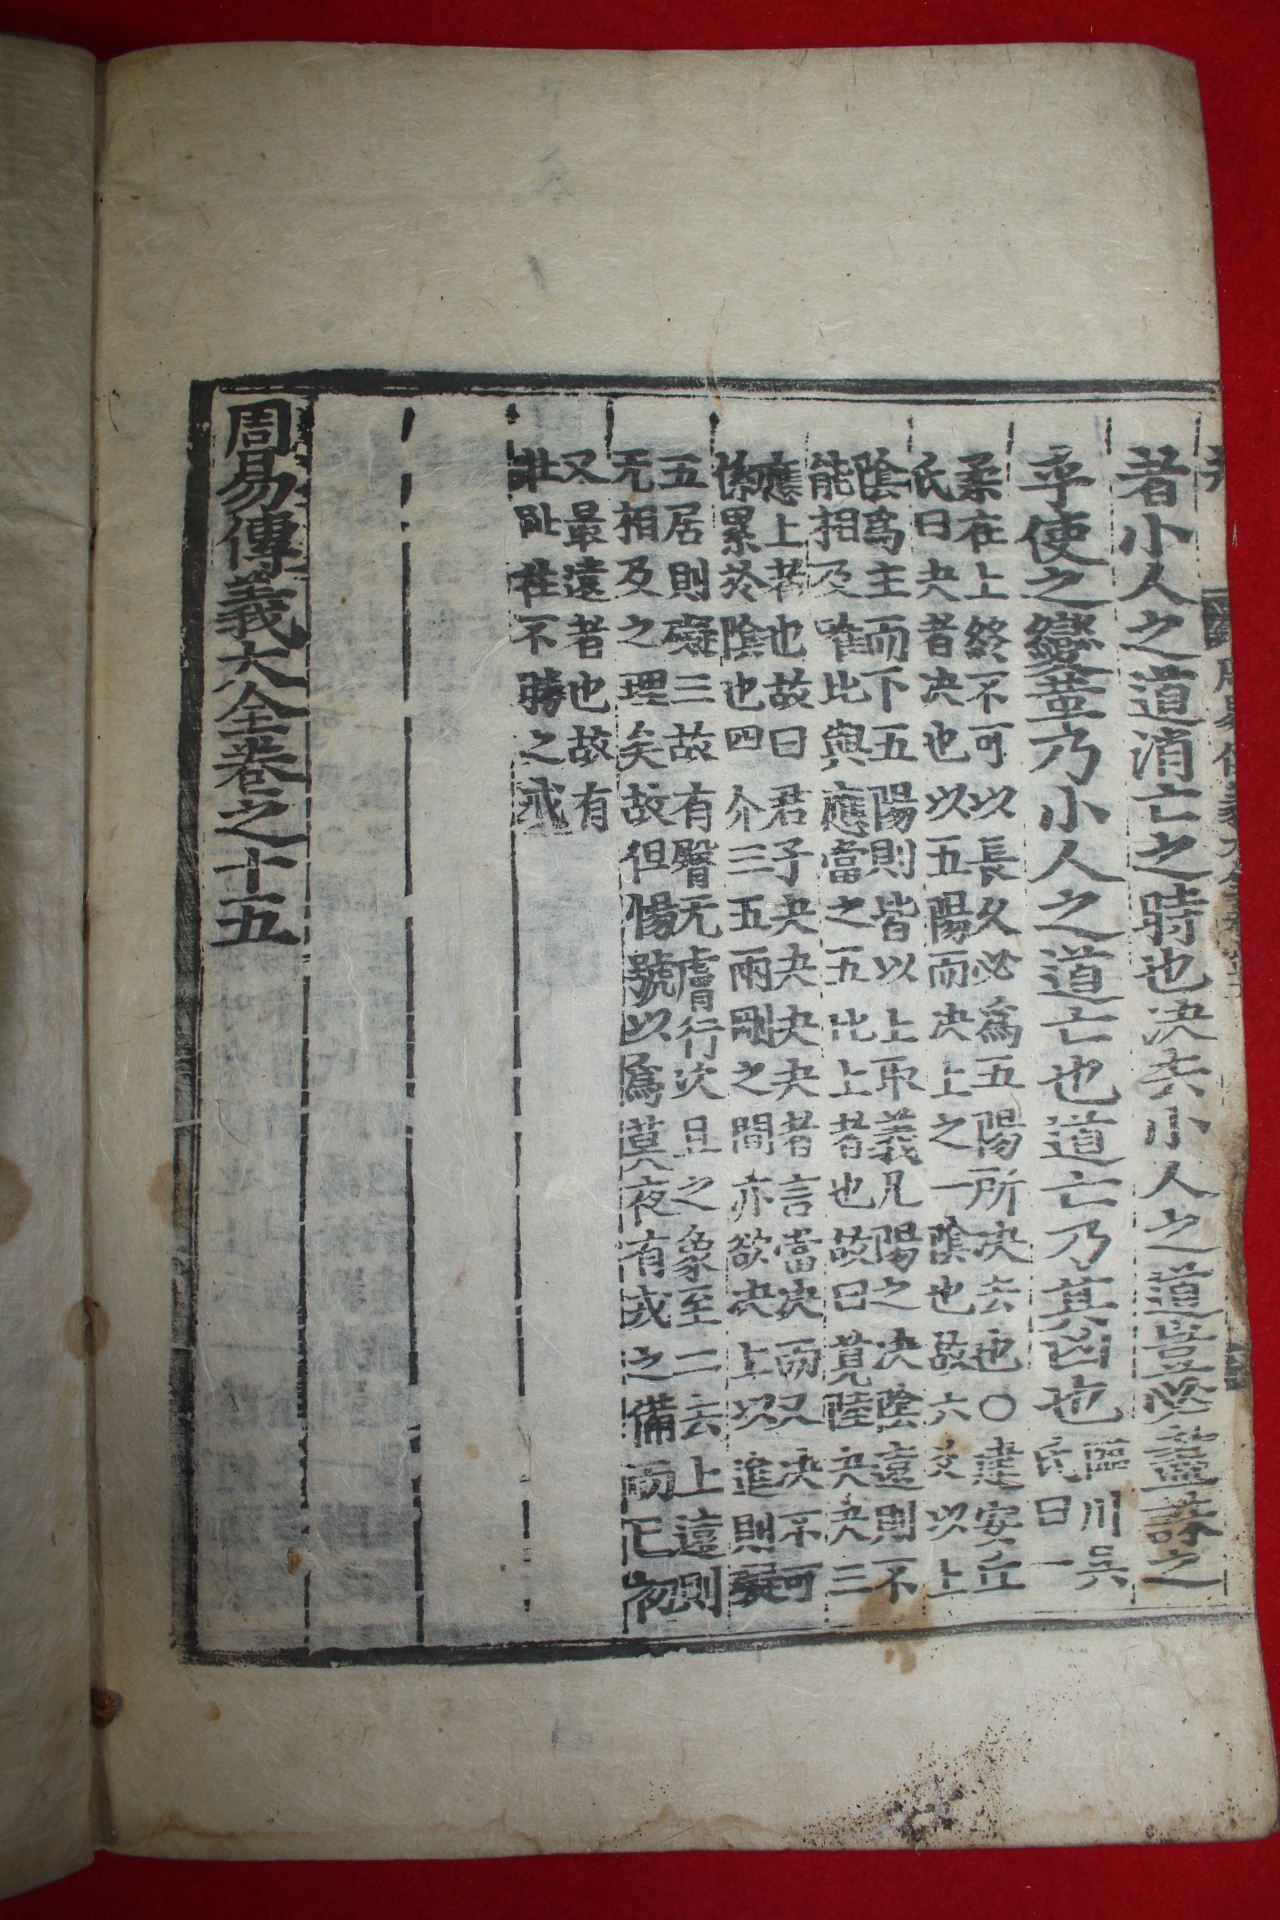 者小人之道消亡之時也決去小人之道豈必盡誅之
乎使之變革乃小人之道亡也道亡乃其凶也
臨川吳
氏曰一
柔在上終不可以長久必爲五陽所決去也○建安丘
氏曰夬者決也以五陽而決上之一陰也故六爻以上
陰爲主而下五陽則皆以上取義凡陽之決陰遠則不
能相及唯比與應當之五比上者也故曰莧陸夬夬三
應上者也故曰君子夬夬夬夬者言當決而又決不可
係累於陰也四介三五兩剛之間亦欲決上以進則礙
五居則礙三故有臀无膚行次且之象至二去上遠則
无相及之理矣故但惕號以爲莫夜有戎之備而已初
又最遠者也故有
壯趾往不勝之戒
周易傳義大全卷之十五